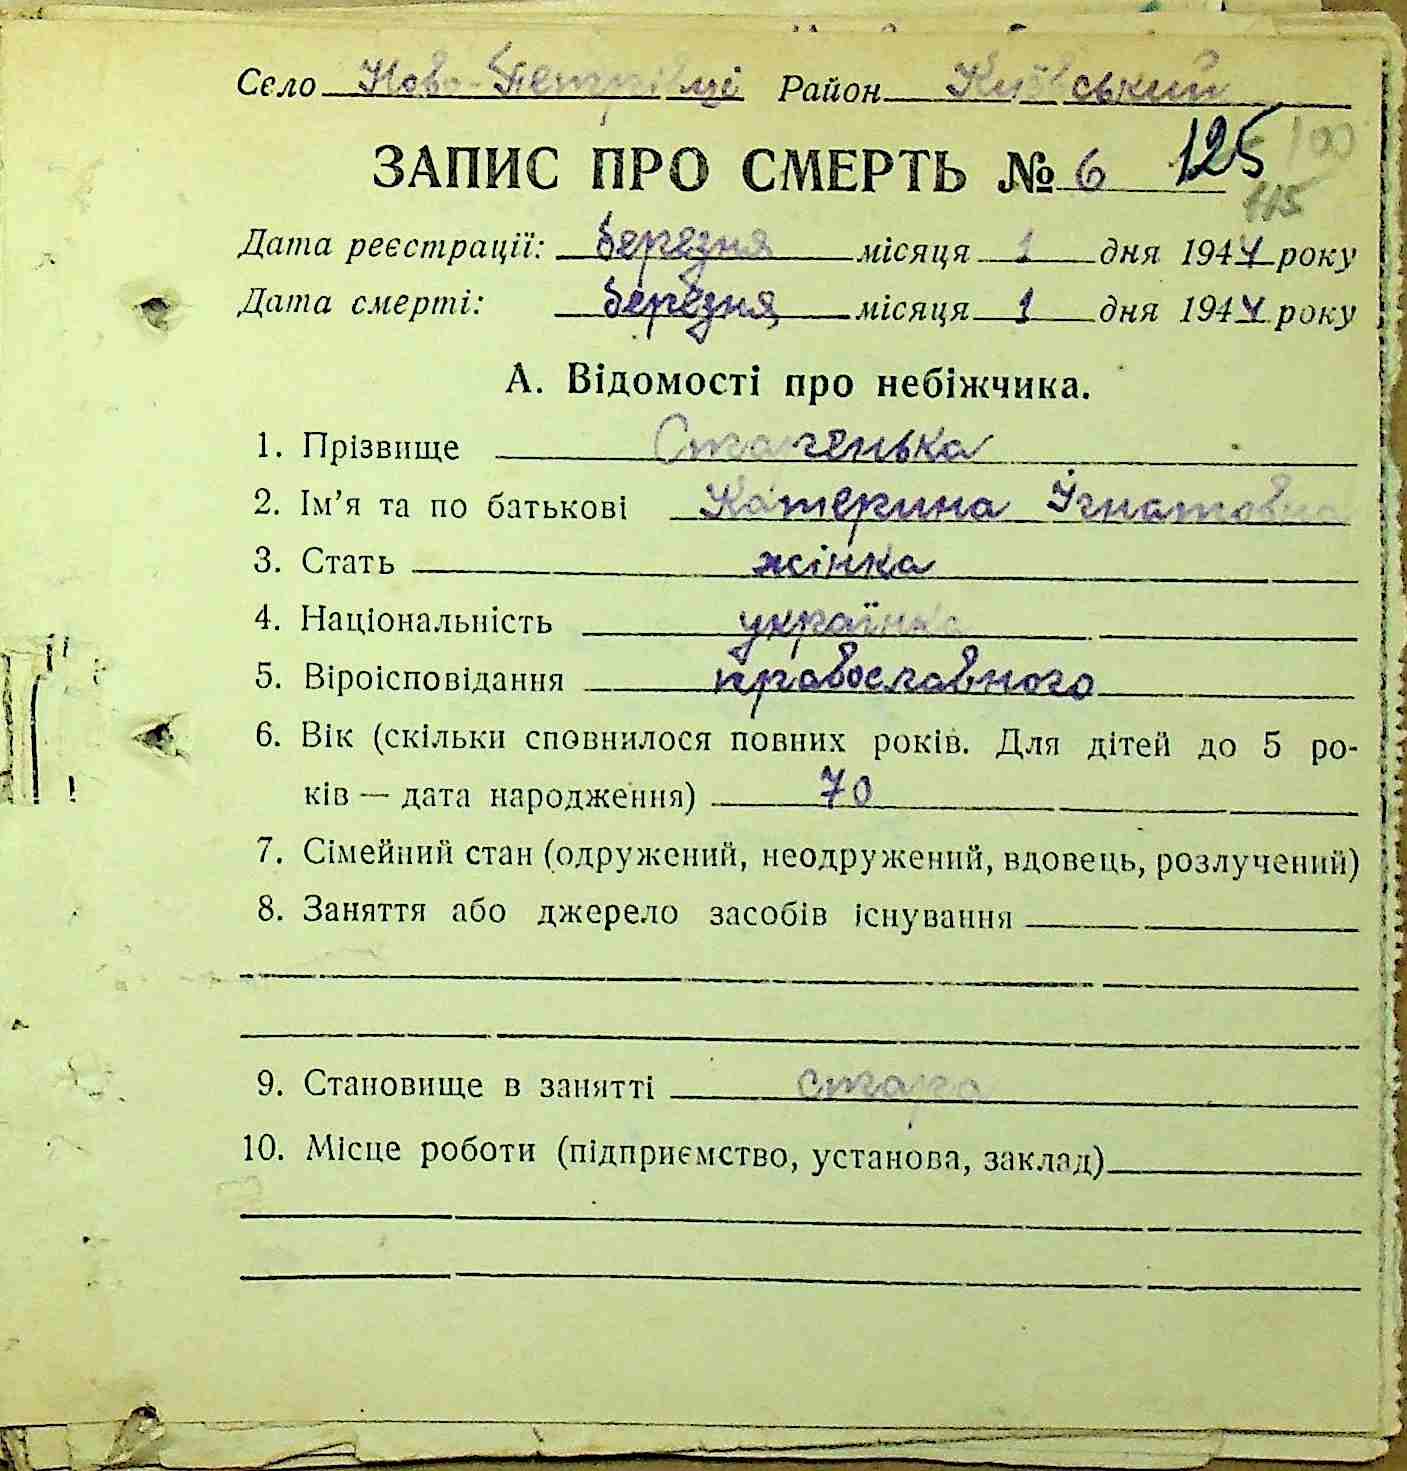 Село Ново-Петрівці Район Київський
ЗАПИС ПРО СМЕРТЬ № 6 125 100
115
Дата реєстрації: березня місяця 1 дня 1944 року
Дата смерті: березня місяця 1 дня 1944 року
А. Відомості про небіжчика.
1. Прізвище Старенька
2. Ім'я та по батькові Катерина Ігнатовна
3. Стать жінка
4. Національність українка
5. Віроісповідання православного
6. Вік (скільки сповнилося повних років. Для дітей до 5 ро-
ків — дата народження) 70
7. Сімейний стан (одружений, неодружений, вдовець, розлучений)
8. Заняття або джерело засобів існування
9. Становище в занятті стара
10. Місце роботи (підприємство, установа, заклад)